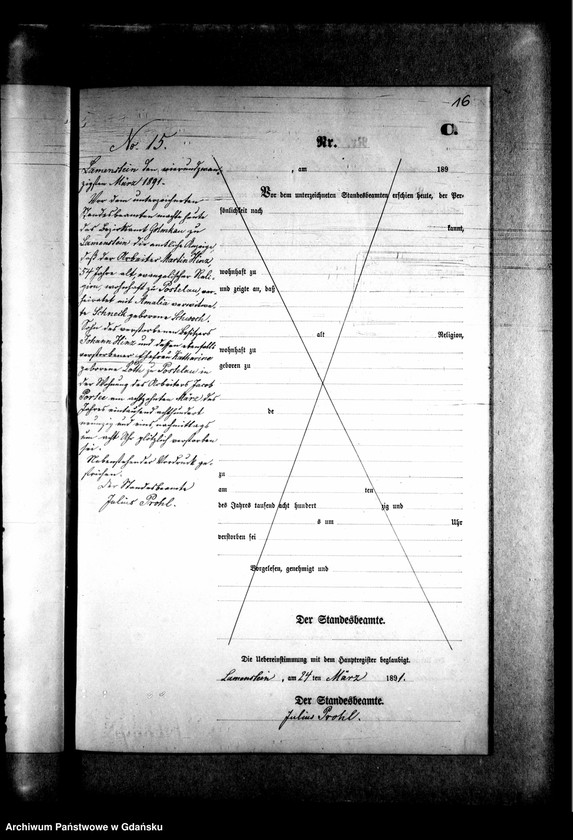 16
C.
No. 15.
Lamenstein den vierundzwan-
zigsten März 1891.
Vor dem unterzeichneten
Standesbeamten machte heute
das Bezirksamt Golmkau zu
Lamenstein die amtliche Anzeige,
daß der Arbeiter Martin Hinz,
54 Jahre alt, evangelischer Reli-
gion, wohnhaft zu Postelau, ver-
heiratet mit Amalia verwitwe-
te Schneck geborene
Sohn des verstorbenen Besitzers
Johann Hinz und dessen ebenfalls
verstorbener Ehefrau Katharina
geborene Loth zu Postelau in
der Wohnung des Arbeiters Jacob
am achtzehnten März des
Jahres eintausend achthundert
neunzig und eins, nachmittags
um acht Uhr plötzlich verstorben
sei.
Nebenstehender Vordruck ge-
strichen.
Der Standesbeamte
Julius Prohl.
Nr.
, am 189
Vor dem unterzeichneten Standesbeamten erschien heute, der Per-
sönlichkeit nach
kannt,
wohnhaft zu
und zeigte an, daß
alt Religion,
wohnhaft zu
geboren zu
de
zu
am ten
des Jahres tausend acht hundert zig und
s um Uhr
verstorben sei
Vorgelesen, genehmigt und
Der Standesbeamte.
Die Uebereinstimmung mit dem Hauptregister beglaubigt.
Lamenstein, am 24 ten März 1891.
Der Standesbeamte.
Julius Prohl.
Archiwum Państwowe w Gdańsku